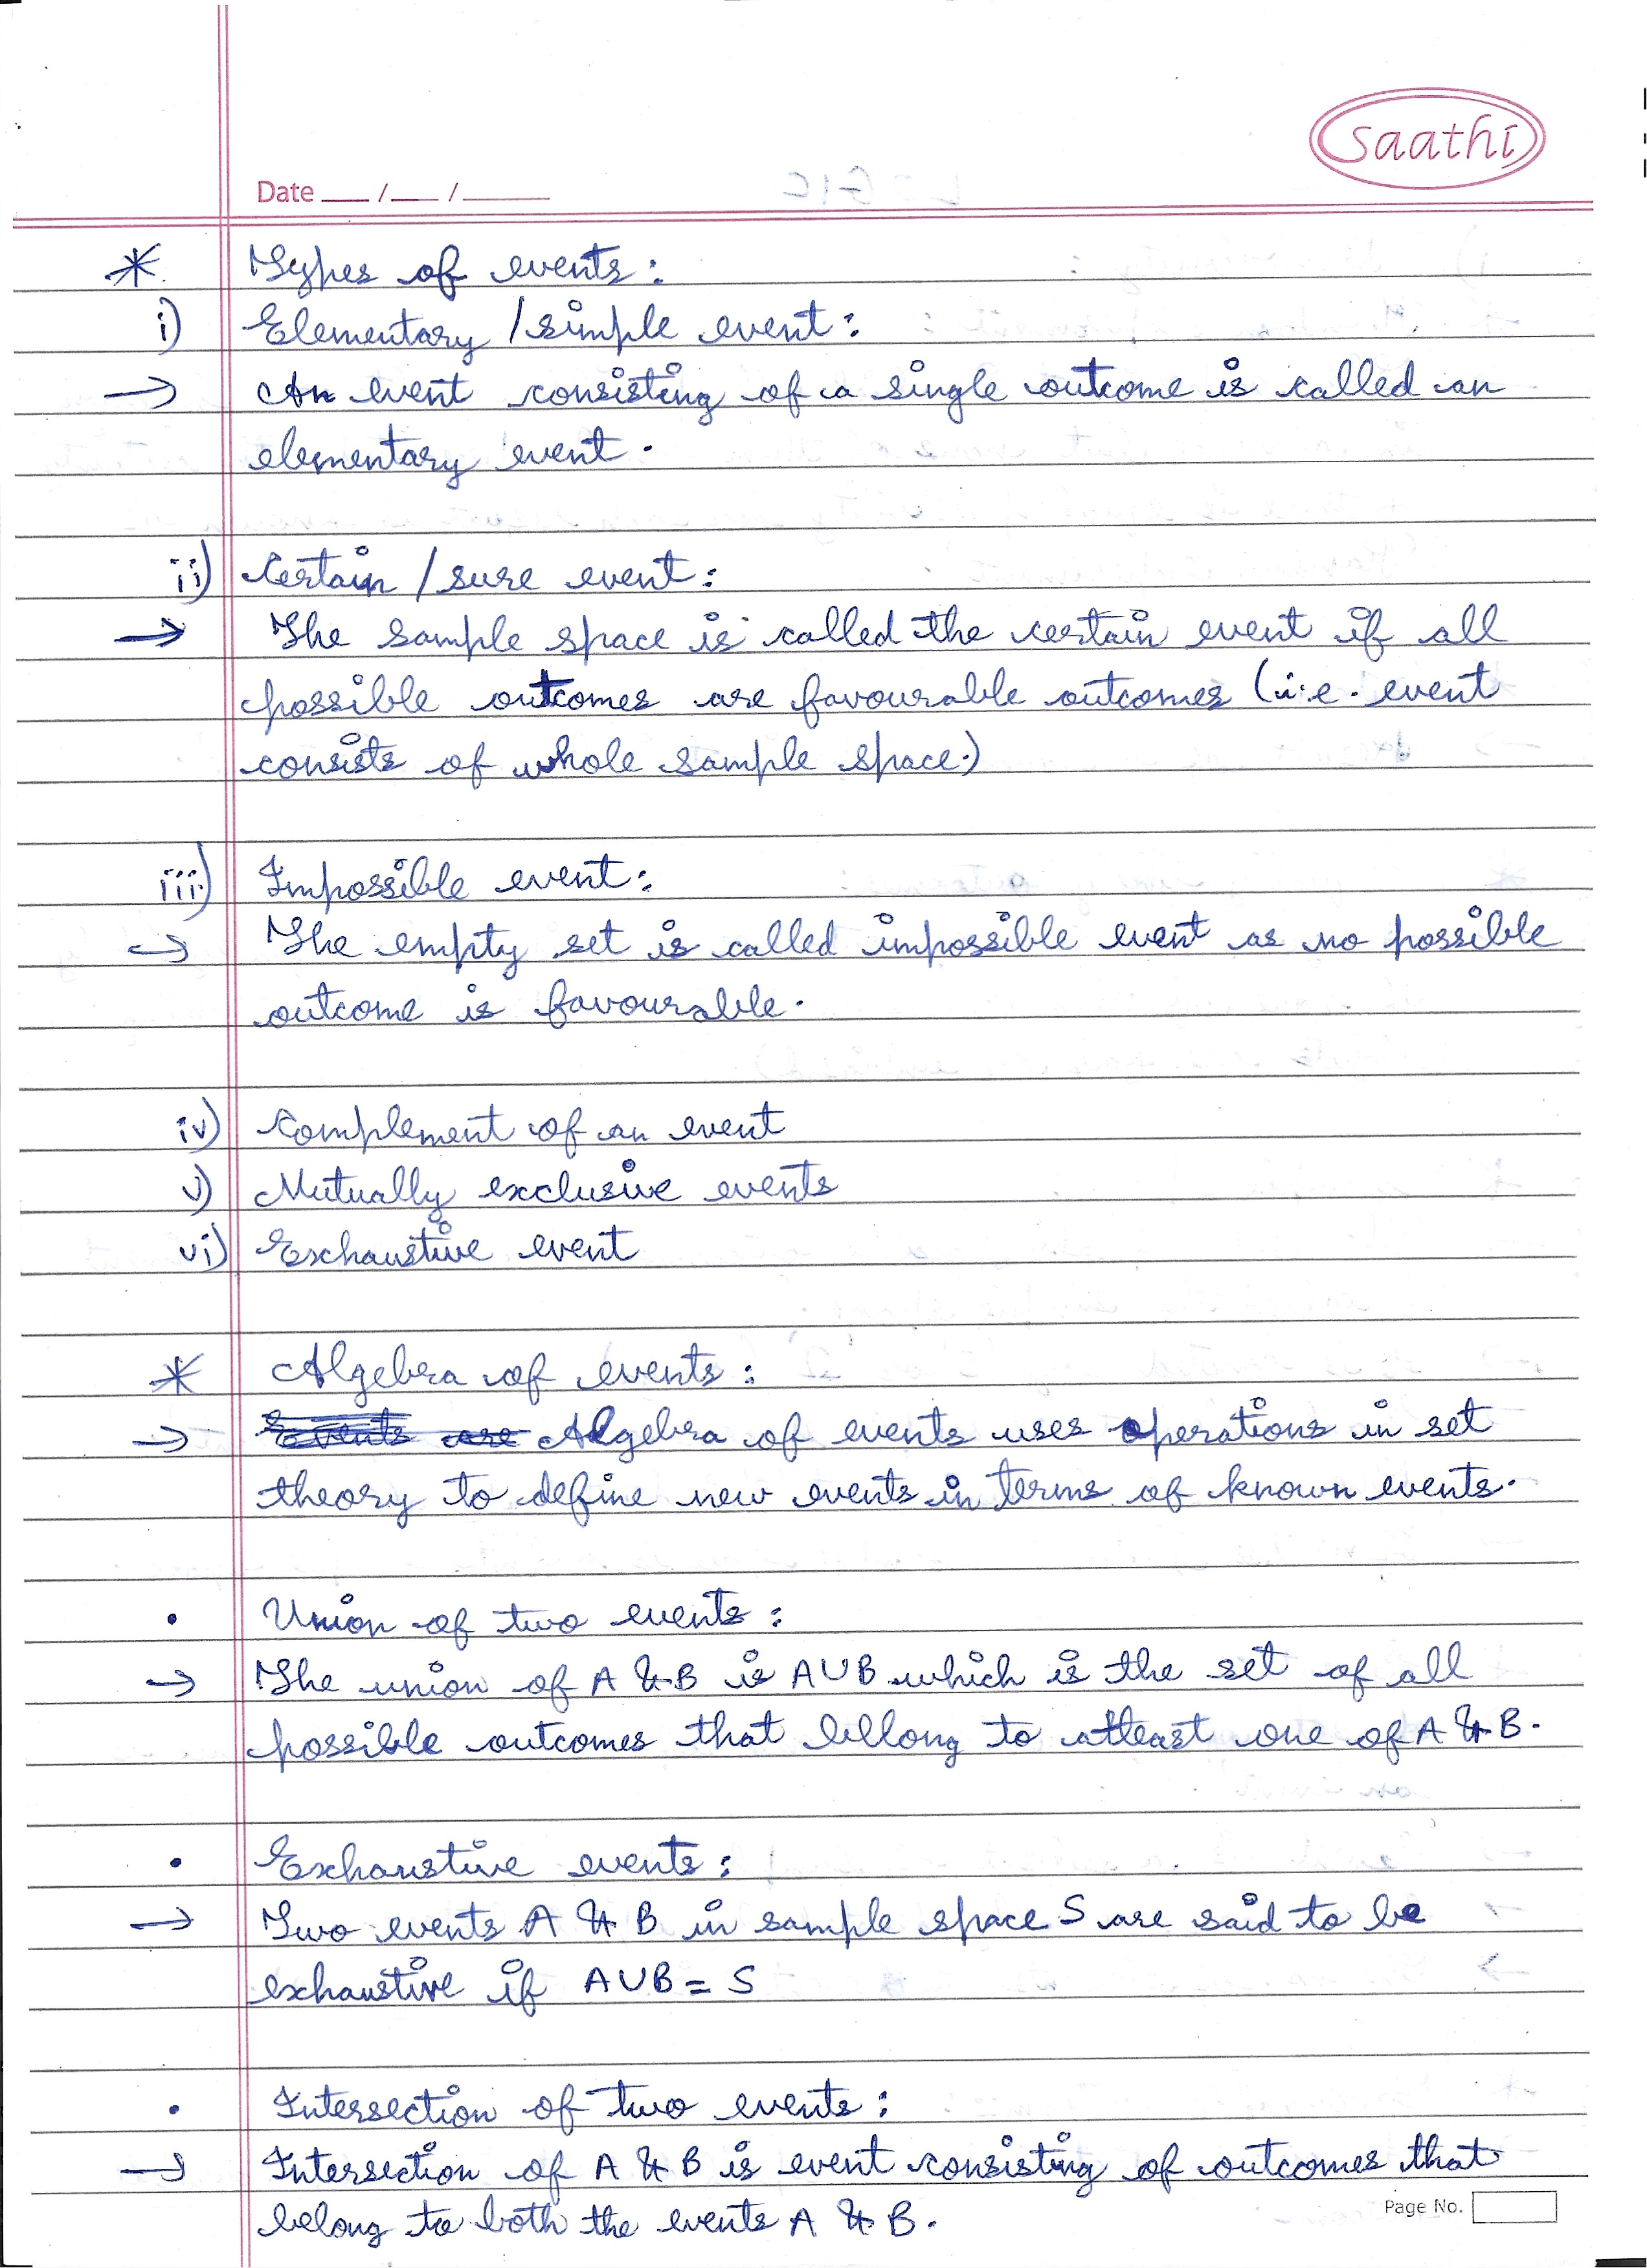 saathi
Date ___ / ___ / ______
* Types of events:
i) Elementary / simple event:
→ An event consisting of a single outcome is called an
elementary event.
ii) Certain / sure event:
→ The sample space is called the certain event if all
possible outcomes are favourable outcomes (i.e. event
consists of whole sample space.)
iii) Impossible event:
→ The empty set is called impossible event as no possible
outcome is favourable.
iv) Complement of an event
v) Mutually exclusive events
vi) Exhaustive event
* Algebra of events:
→ Events are Algebra of events uses operations in set
theory to define new events in terms of known events.
• Union of two events:
→ The union of A & B is A∪B which is the set of all
possible outcomes that bellong to atleast one of A & B.
• Exhaustive events:
→ Two events A & B in sample space S are said to be
exhaustive if A∪B = S
• Intersection of two events:
→ Intersection of A & B is event consisting of outcomes that
belong to both the events A & B.
Page No.